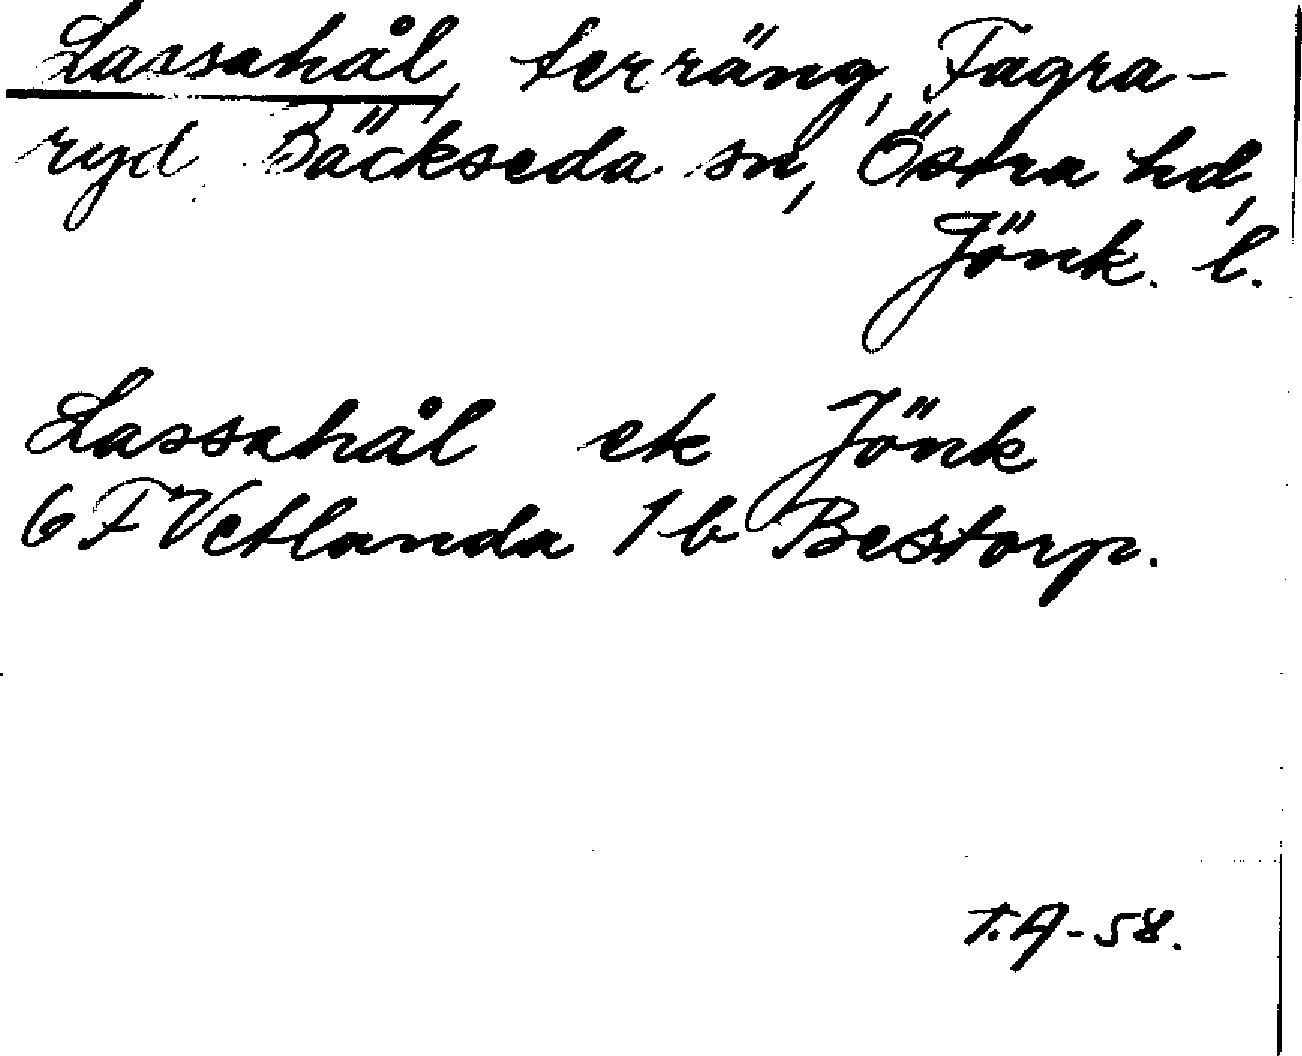 Lassahål, terräng, Fagra-
ryd Bäckseda sn, Östra hd,
Jönk. l.
Lassahål ek Jönk
6 F Vetlanda 1 b Bestorp.
T.A-58.